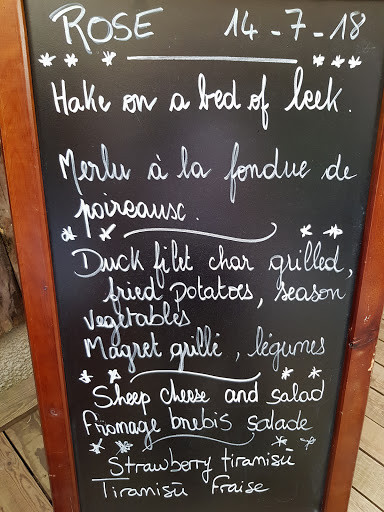 ROSE 14-7-18
Hake on a bed of leek.
Merlu à la fondue de
poireaux.
Duck filet char grilled,
fried potatoes, season
vegetables
Magret grillé, légumes
Sheep cheese and salad
fromage brebis salade
Strawberry tiramisù
Tiramisù Fraise